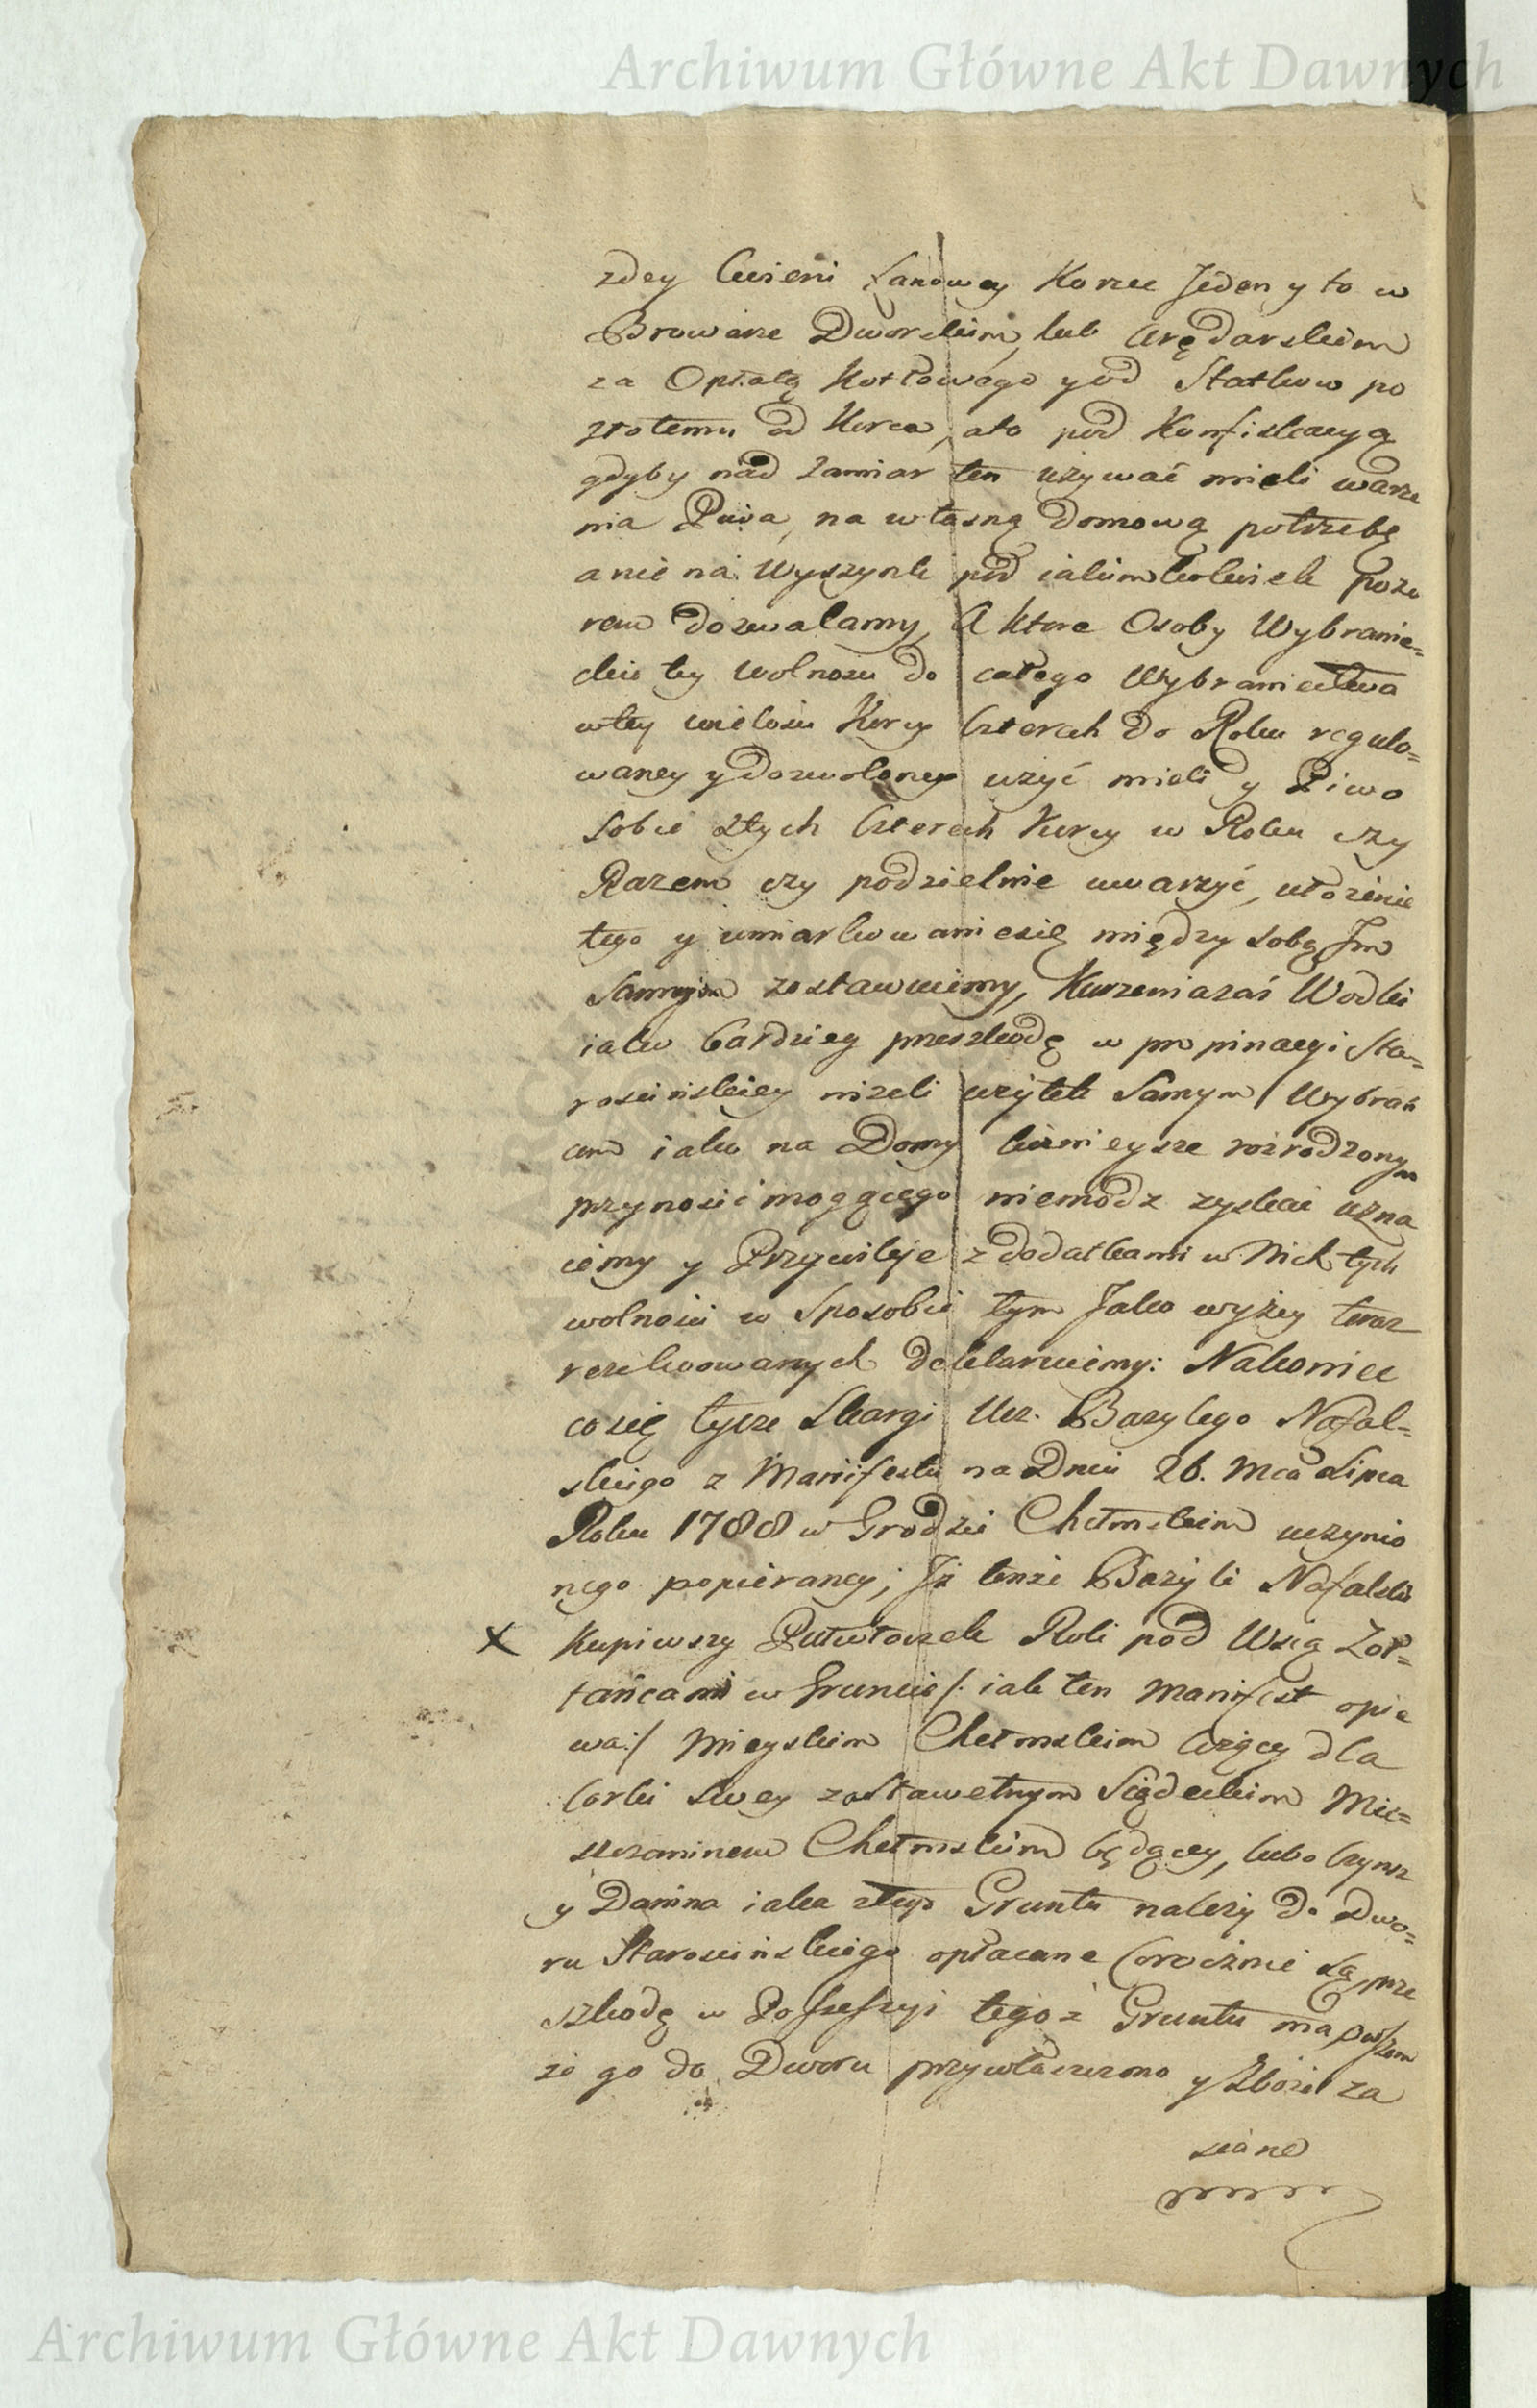 Archiwum Główne Akt Dawnych
zdey Cwierci Łanowey Korzec Jeden y to w
Browarze Dworskim, lub Arędarskim
za Opłatą Kotłowego y od Statkow po
złotemu od Korca, a to pod Konfiskacyą
gdyby nad zamiar ten używać mieli warze
nia Piwa, na własną domową potrzebę
a nie na Wyszynk pod iakimkolwiek pozo
rem dozwalamy, A ktore Osoby Wybranie=
ckie tey wolności do całego Wybraniectwa
w tey wielości Korcy Czterech do Roku regulo=
waney y dozwoloney użyć mieli y Piwo
sobie z tych Czterech Korcy w Roku czy
Razem czy podzielnie uwarzyć, ułożenie
tego y umiarkowanie się między sobą Im
Samym zostawuiemy, Kurzenia zaś Wodki
iako bardziey przeszkodę w propinacyi Sta=
rościńskiey niżeli użytek Samym Wybrań
com iako na Domy licznieysze rozrodzonym
przynosić mogącego niemodz zyskać uzna
iemy y Przywileje z dodatkami w Nich tych
wolności w Sposobie tym Jako wyżey teraz
rezolwowanych deklaruiemy: Nakoniec
co się tycze Skargi Ucz. Bazylego Nafal=
skiego z Manifestu na Dniu 26. Mca Lipca
Roku 1788 w Grodzie Chełmskim uczynio
nego popieraney; Iż tenże Bazyli Nafalski
X Kupiwszy Pułwłoczek Roli pod Wsią Żoł=
tańcami w Gruncie /: iak ten Manifest opie
wa :/ Mieyskim Chełmskim leżący dla
Corki swey za Sławetnym Siądeckim Mie=
szczaninem Chełmskim będącey, lubo Czynsz
y Danina iaka z tego Gruntu należy do Dwo=
ru Starościńskiego opłacane Corocznie są, prze
szkodę w Possessyi tegoż Gruntu ma, owszem
że go do Dworu przywłaszczono y Zboże za
siane
Archiwum Główne Akt Dawnych